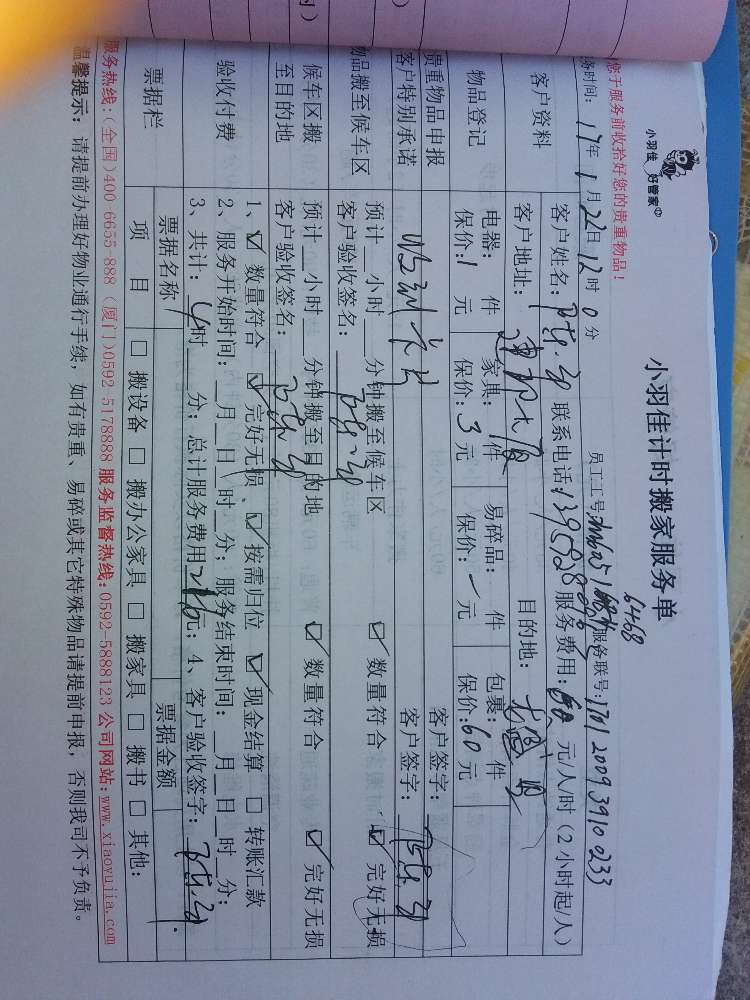 小羽佳 好管家
小羽佳计时搬家服务单
6468
您于服务前收拾好您的贵重物品！
务时间：17年1月22日12时0分 员工工号： 服务联号：1701 2009 3910 0233
客户资料
客户姓名： 联系电话： 服务费用： 元/人/时（2小时起/人）
客户地址： 目的地：
物品登记
电器： 件 家具： 件 易碎品： 件 包裹： 件
保价：1 元 保价：3 元 保价：一元 保价：60元
贵重物品申报 客户签字：
客户特别承诺 客户签字：
物品搬至候车区
预计__小时__分钟搬至候车区 ☑ 数量符合 ☑ 完好无损
客户验收签名：
候车区搬至目的地
预计__小时__分钟搬至目的地 ☑ 数量符合 ☑ 完好无损
客户验收签名：
验收付费
1、☑ 数量符合 ☑ 完好无损、☑ 按需归位 ☑ 现金结算 □ 转账汇款
2、服务开始时间：__月__日__时__分；服务结束时间：__月__日__时__分；
3、共计：4时__分；总计服务费用 元；4、客户验收签字：
票据栏
票据名称 票据金额
项 目 □ 搬设备 □ 搬办公家具 □ 搬家具 □ 搬书 □ 其他：
服务热线：（全国）400 6655 888（厦门）0592 5178888 服务监督热线：0592-5888123 公司网站：www.xiaoyujia.com
温馨提示：请提前办理好物业通行手续，如有贵重、易碎或其它特殊物品请提前申报，否则我司不予负责。